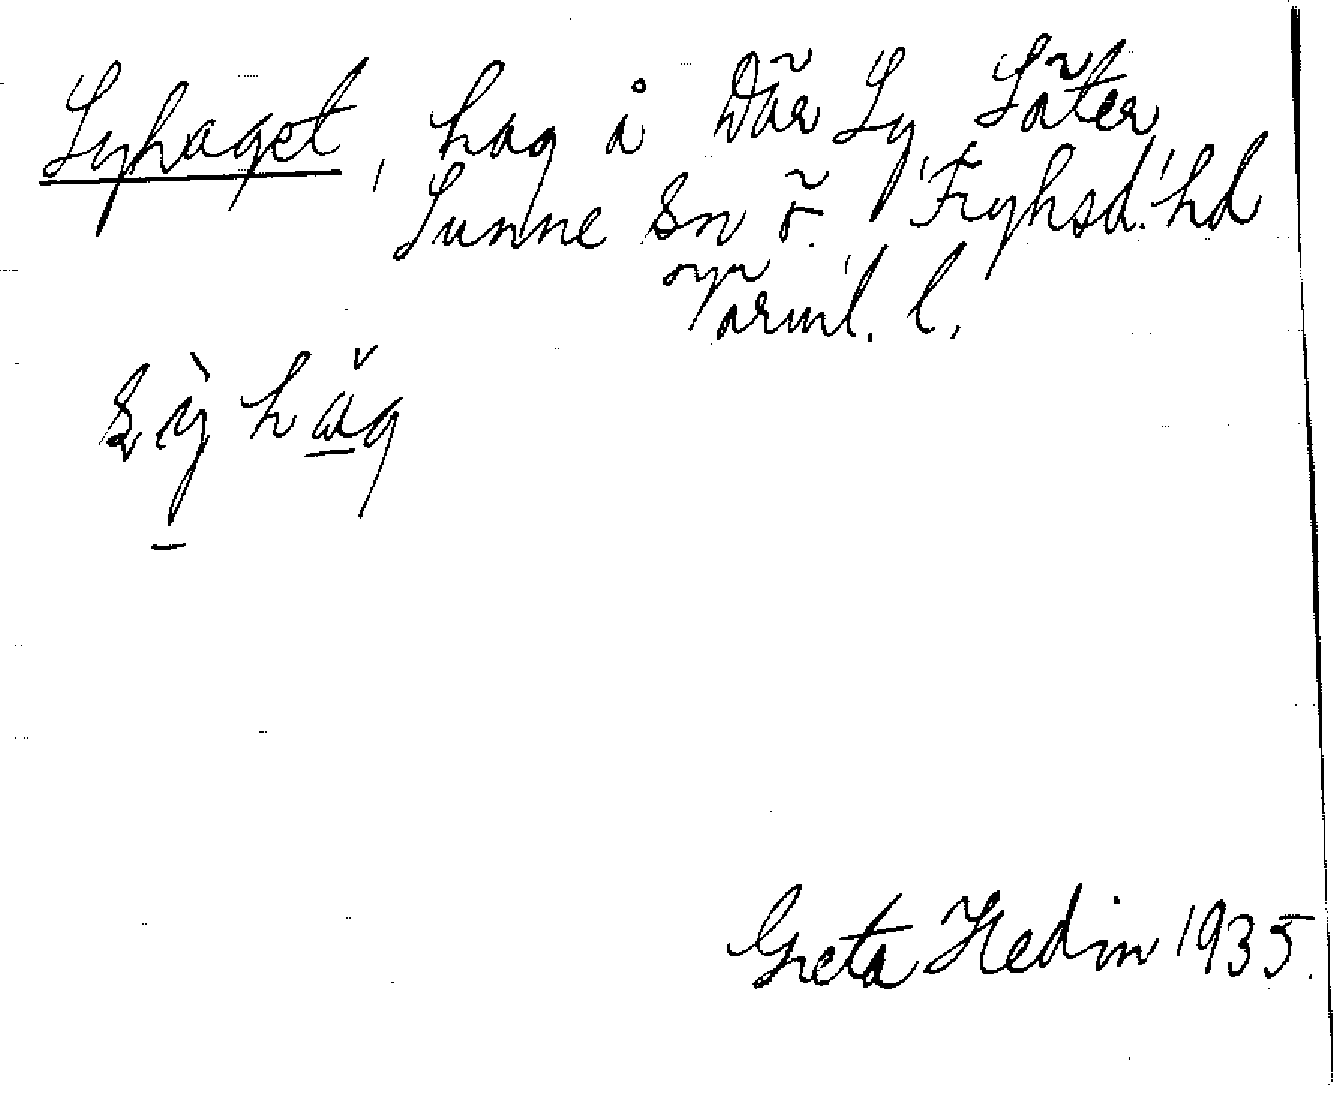 Syhaget, hag å Där Sy, Säter,
Sunne sn ö. Fryksd. hd
Värml. l.
sỳhăg
Greta Hedin 1935.